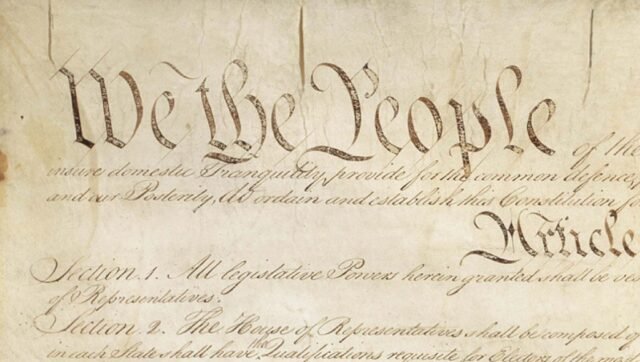 We the People of the
insure domestic Tranquility, provide for the common defence,
and our Posterity, do ordain and establish this Constitution fo
Article
Section. 1. All legislative Powers herein granted shall be ve
of Representatives.
Section. 2. The House of Representatives shall be composed o
in each State shall have the Qualifications requisite for Electors of the mo